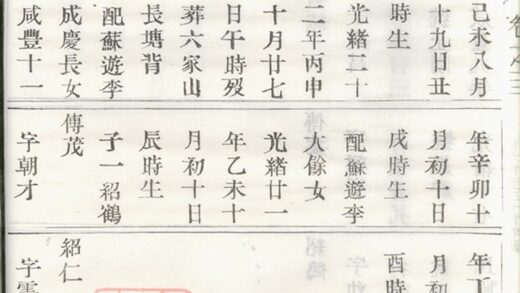 己未八月
十九日丑
時生
光緒二十
二年丙申
十月廿七
日午時殁
葬六家山
長塘背
配蘇遊李
成慶長女
咸豐十一
年辛卯十
月初十日
戌時生
配蘇遊李
大餘女
光緒廿一
年乙未十
月初十日
辰時生
子一紹鶴
傳茂
字朝才
年丁
月初
酉時
紹仁
字